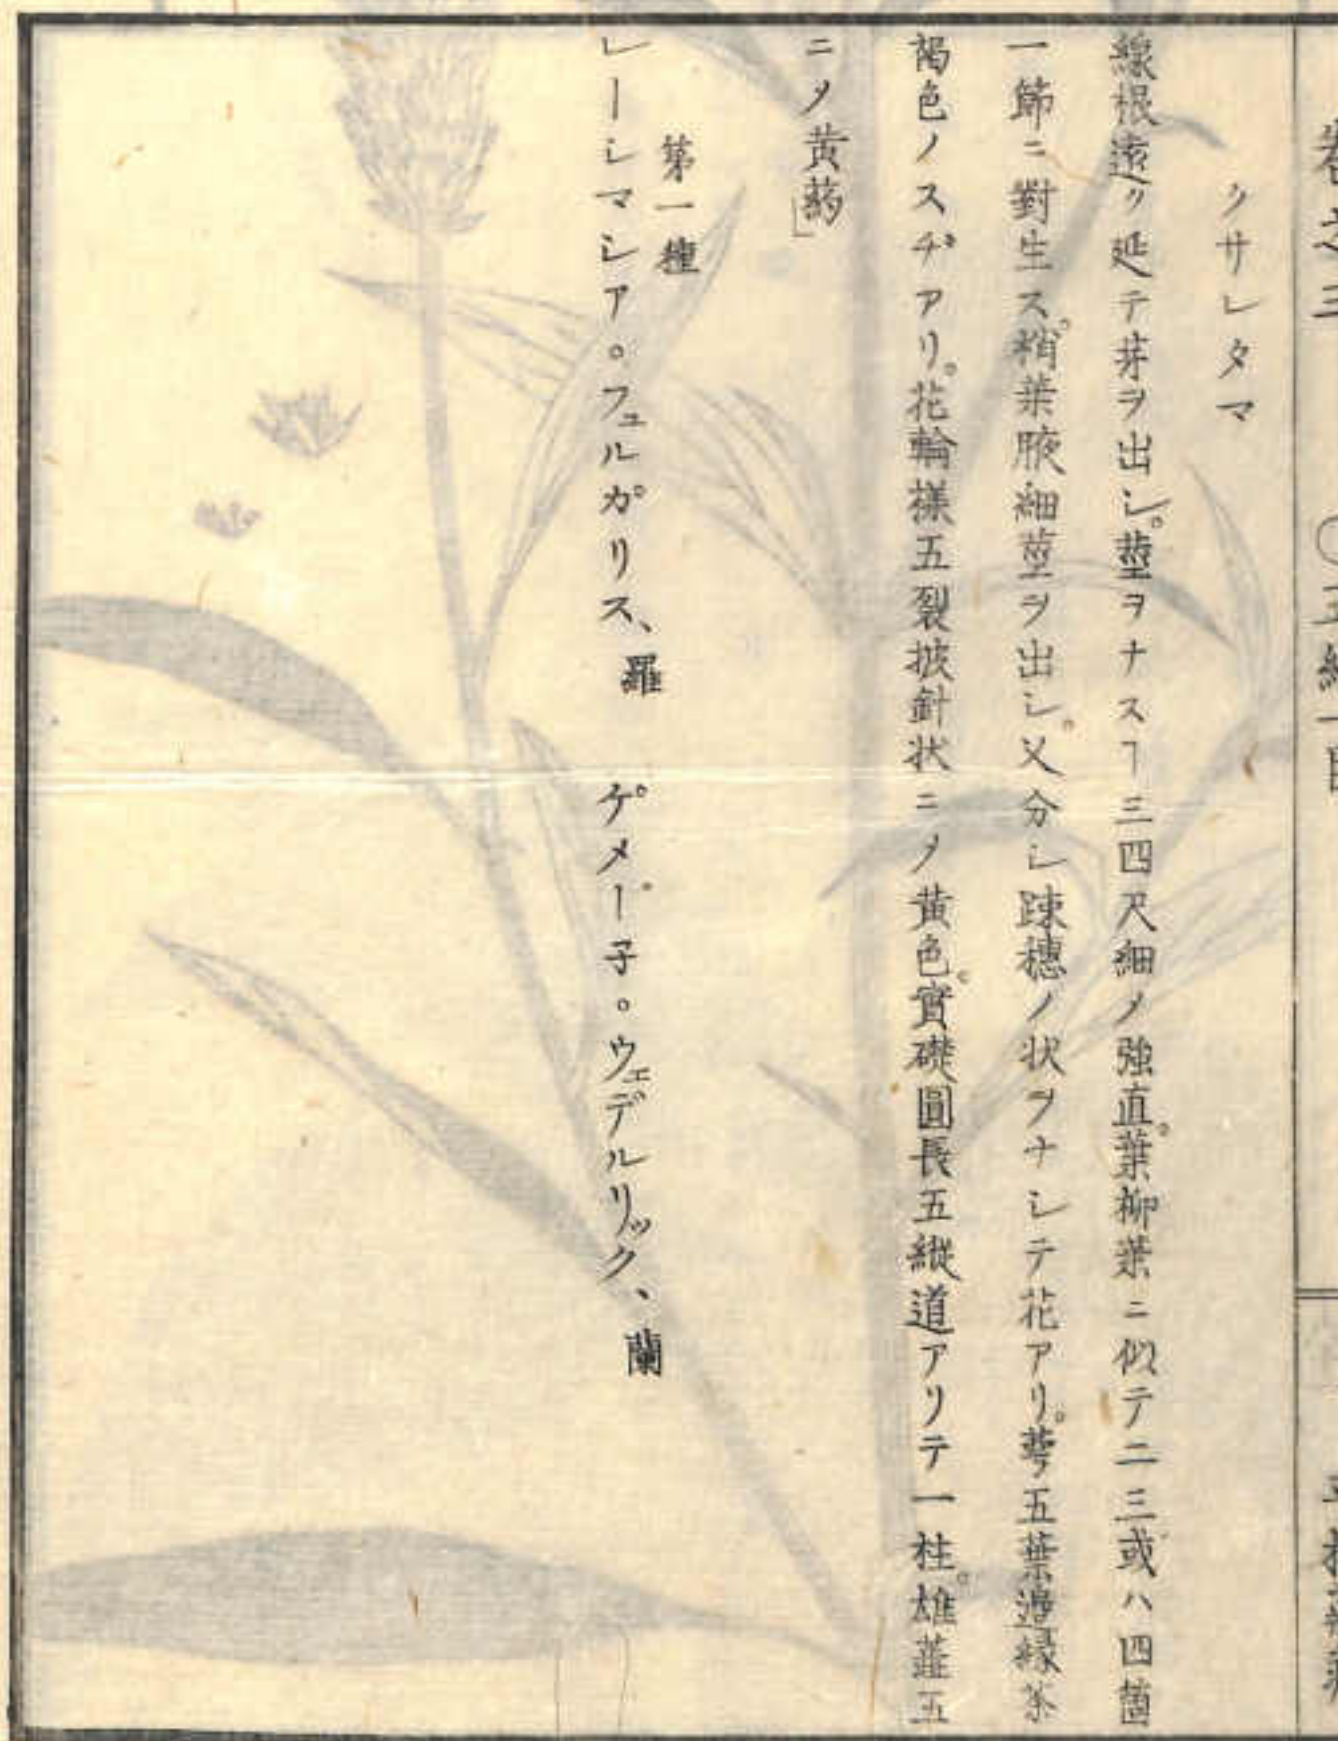 クサレタマ
線根遠ク延テ芽ヲ出シ。莖ヲナスヿ三四尺細メ強直。葉柳葉ニ似テ二三或ハ四箇
一節ニ對生ス。梢葉腋細莖ヲ出シ。又分レ踈穗ノ状ヲナシテ花アリ。萼五葉邊緣茶
褐色ノスヂアリ。花輪樣五裂披針状ニメ黄色。實礎圓長五縱道アリテ一柱。雄蘂五
ニメ黄葯」
第一種
レーシマシア。フェルガリス、羅 ゲメー子。ウェデルリック、蘭